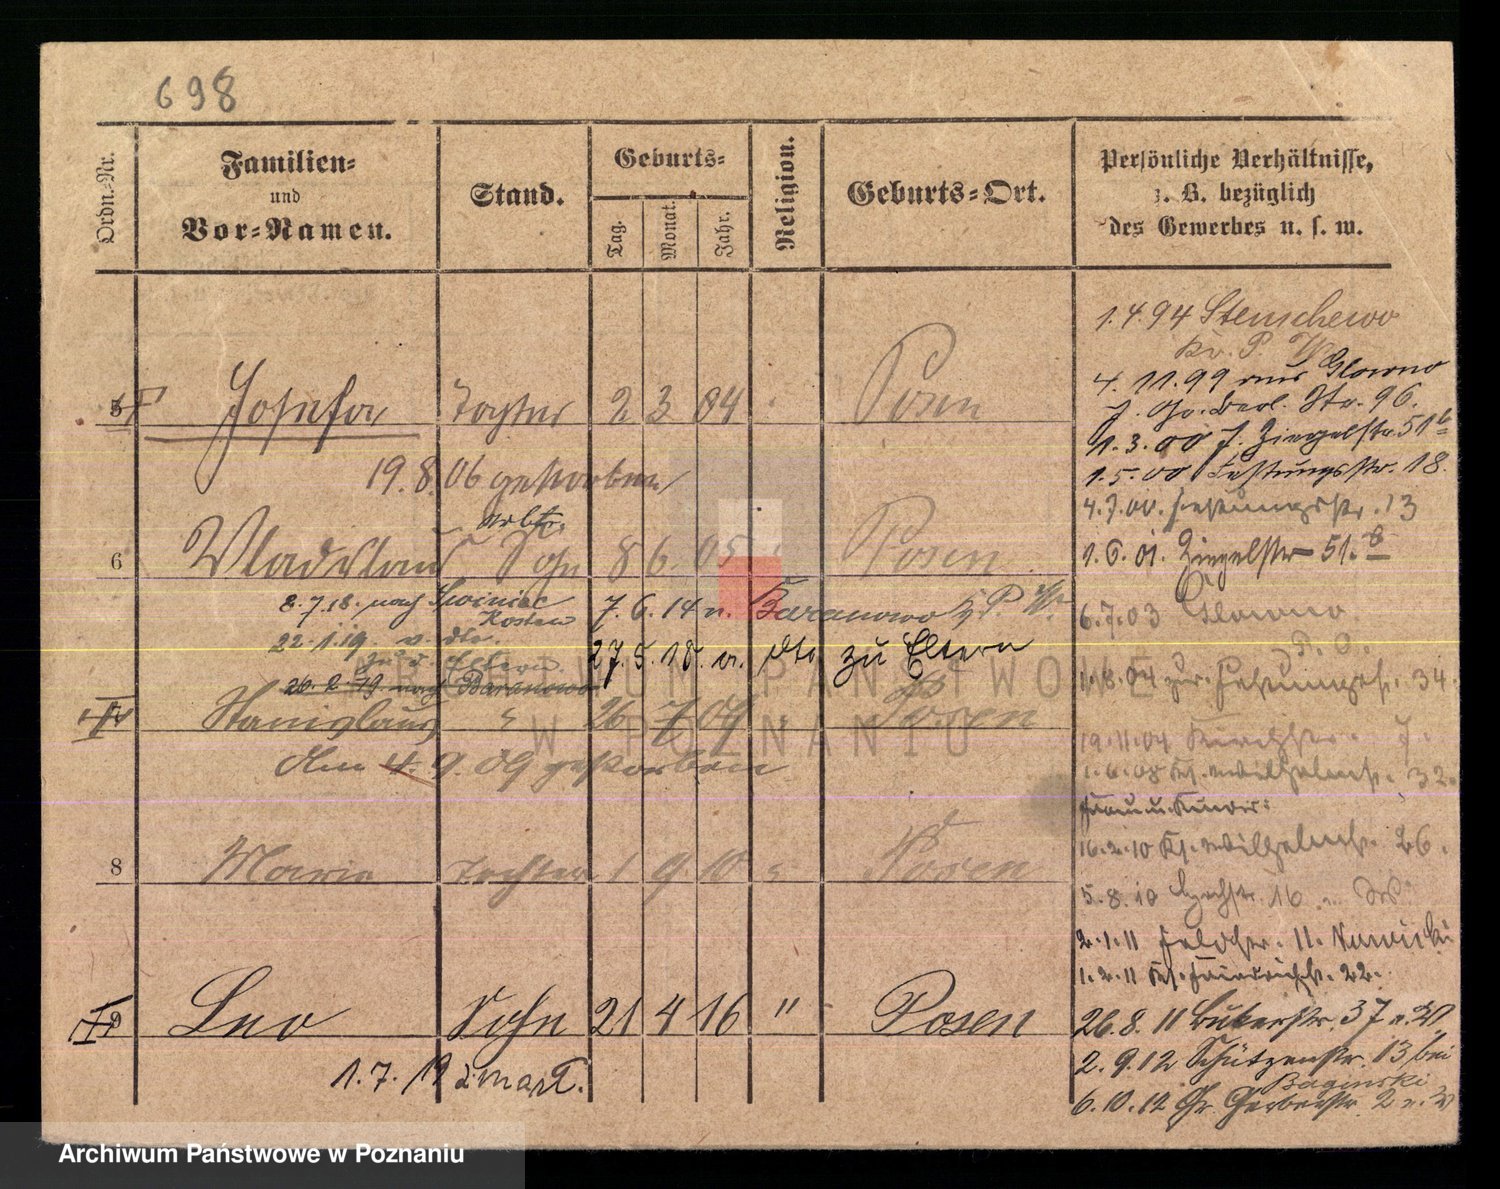 698
Ordn.-Nr.
Familien-
und
Vor-Namen.
Stand.
Geburts-
Tag.
Monat.
Jahr.
Religion.
Geburts-Ort.
Persönliche Verhältnisse,
z. B. bezüglich
des Gewerbes u. s. w.
5 Josefa Tochter 2 3 04 Posen
19.8.06 gestorben
Arbtr.
6 Vladislaus Sohn 8 6 05 Posen
8.7.18. nach
Kosten
7.6.14 n. Baranowo Kr. P. W.
22.1.19 v. dto.
zu d. Eltern.
27.5.18. a. dto zu Eltern
26.2.19 nach Baranowo
Stanislaus 26 7 09 Posen
Am 4.9.09 gestorben
8 Maria Tochter 1 9 10 Posen
9 Leo Sohn 21 4 16 " Posen
1.7.19
1.4.94 Stenschewo
Kr. P. W.
4.11.99 aus Glowno
Str. 96.
1.3.00 Ziegelstr. 51b
1.5.00 Festungsstr. 18.
4.7.00. Festungsstr. 13
1.6.01. Ziegelstr 51.b
6.7.03 Glowno
P. O.
1.8.04 zur. Festungsstr. 34.
19.11.04 7.
1.6.08 Kl. Wilhelmstr. 32.
Frau u. Kinder:
16.2.10 Kl. Wilhelmstr. 26.
5.8.10 16
2.1.11 Feldstr. 11.
1.2.11 Kl. 22.
26.8.11 37
2.9.12 Schützenstr. 13 bei
Baginski
6.10.12 Gr Gerberstr. 2
ARCHIWUM PAŃSTWOWE
W POZNANIU
Archiwum Państwowe w Poznaniu